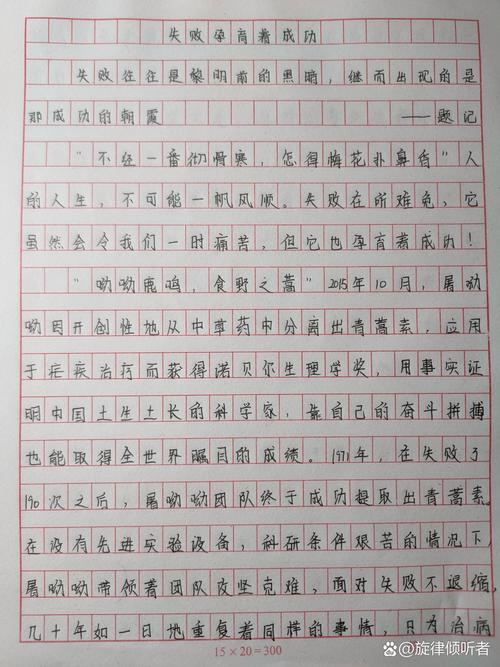 失败孕育着成功
失败往往是黎明前的黑暗，继而出现的是
那成功的朝霞 ——题记
“不经一番彻骨寒，怎得梅花扑鼻香”人
的人生，不可能一帆风顺。失败在所难免，它
虽然会令我们一时痛苦，但它也孕育着成功！
“呦呦鹿鸣，食野之蒿”2015年10月，屠呦
呦因开创性地从中草药中分离出青蒿素，应用
于疟疾治疗而获得诺贝尔生理学奖，用事实证
明中国土生土长的科学家，靠自己的奋斗拼搏
也能取得全世界瞩目的成绩。1971年，在失败了
190次之后，屠呦呦团队终于成功提取出青蒿素。
在没有先进实验设备，科研条件艰苦的情况下
屠呦呦带领着团队攻坚克难，面对失败不退缩，
几十年如一日地重复着同样的事情，只为治病
15×20=300
@旋律倾听者